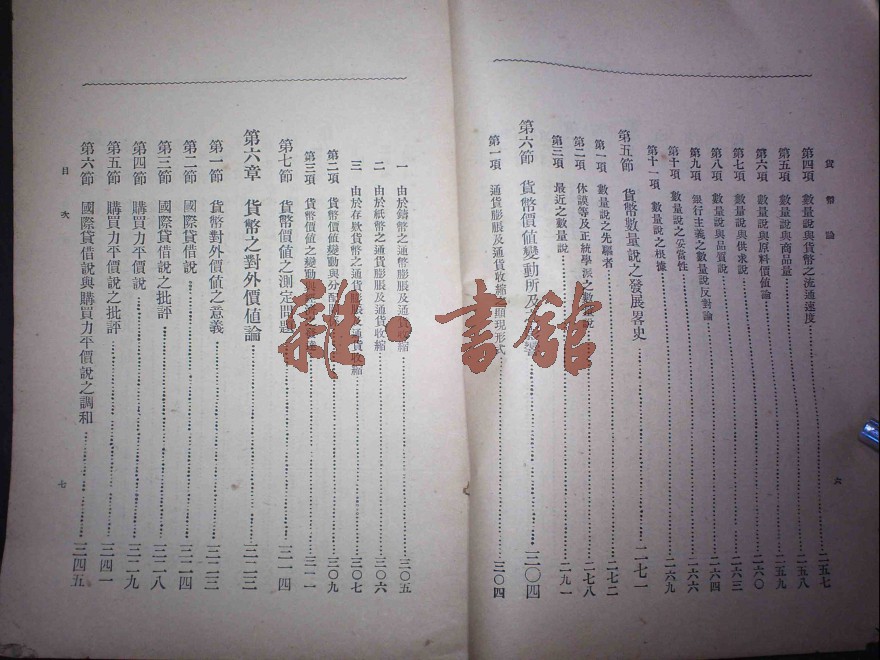 貨幣論
第四項 數量說與貨幣之流通速度 二五七
第五項 數量說與商品量 二五八
第六項 數量說與原料價值論 二六〇
第七項 數量說與供求說 二六三
第八項 數量說與品質說 二六四
第九項 銀行主義之數量說反對論 二六六
第十項 數量說之妥當性 二六九
第十一項 數量說之根據 二七一
第五節 貨幣數量說之發展畧史
第一項 數量說之先驅者 二七二
第二項 休謨等及正統學派之數量說 二七八
第三項 最近之數量說 二九一
第六節 貨幣價值變動所及之影響 三〇四
第一項 通貨膨脹及通貨收縮之顯現形式 三〇四
六
一 由於鑄幣之通幣膨脹及通貨收縮 三〇五
二 由於紙幣之通貨膨脹及通貨收縮 三〇六
三 由於存欵貨幣之通貨膨脹及通貨收縮 三〇七
第二項 貨幣價值變動與分配 三〇九
第三項 貨幣價值之變動與 三一一
第七節 貨幣價值之測定問題 三一四
第六章 貨幣之對外價值論 三二三
第一節 貨幣對外價值之意義 三二三
第二節 國際貸借說 三二四
第三節 國際貸借說之批評 三二八
第四節 購買力平價說 三二九
第五節 購買力平價說之批評 三四一
第六節 國際貸借說與購買力平價說之調和 三四五
目次
七
雜·書館